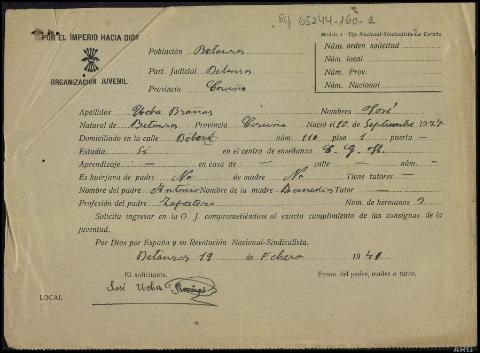 Sig 65244-160-2
POR EL IMPERIO HACIA DIOS
ORGANIZACIÓN JUVENIL
Modelo 1 - Tip. Nacional-Sindicalista-La Coruña
Población Betanzos
Part. Judicial Betanzos
Provincia Coruña
Núm. orden solicitud
Núm. local
Núm. Prov.
Núm. Nacional
Apellidos Ucha Brañas Nombres José
Natural de Betanzos Provincia Coruña Nació el 10 de Septiembre 1927
Domiciliado en la calle núm. 110 piso 1 puerta —
Estudia Si en el centro de enseñanza
Aprendizaje — en casa de — calle — núm. —
Es huérfano de padre No de madre No Tiene tutores —
Nombre del padre Antonio Nombre de la madre Remedios Tutor —
Profesión del padre Zapatero Núm. de hermanos 2
Solicita ingresar en la O. J. comprometiéndose al exacto cumplimiento de las consignas de la
juventud.
Por Dios por España y su Revolución Nacional-Sindicalista.
Betanzos 19 de Febrero 1941
El solicitante. Firma del padre, madre o tutor,
José Ucha
LOCAL
ARG